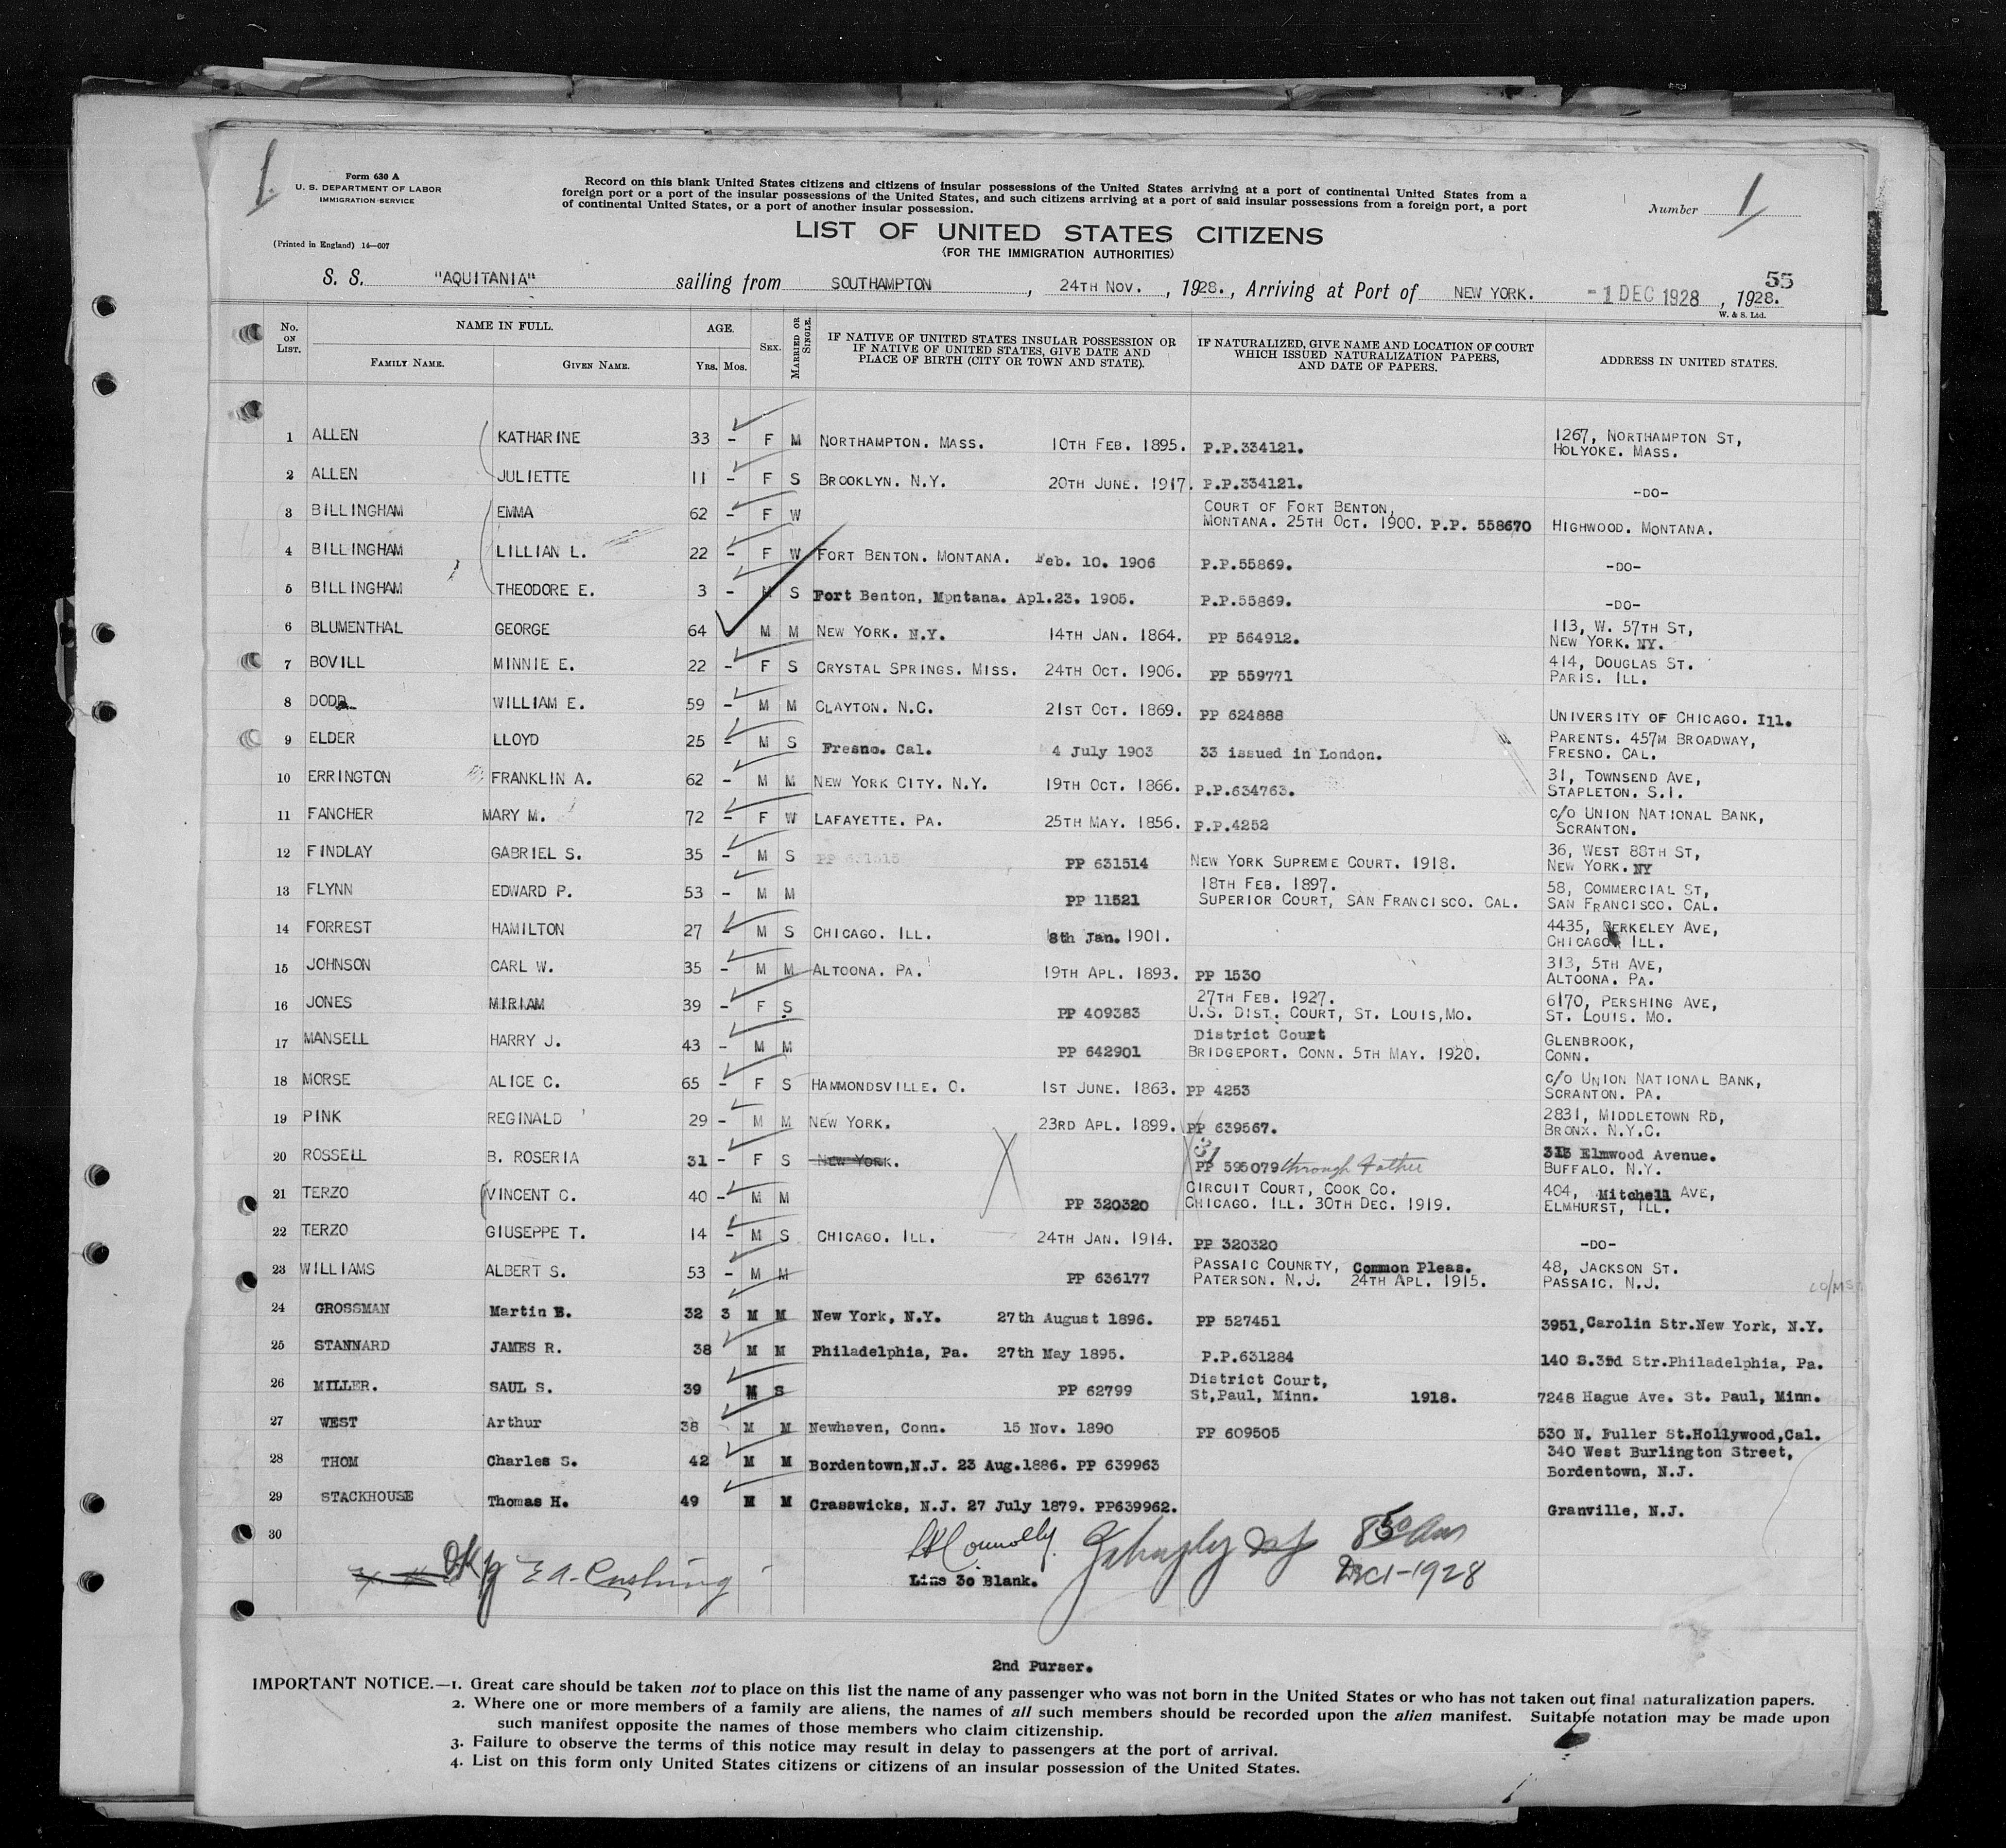 Form 630 A
U. S. DEPARTMENT OF LABOR
IMMIGRATION SERVICE
(Printed in England) 14—607
Record on this blank United States citizens and citizens of insular possessions of the United States arriving at a port of continental United States from a
foreign port or a port of the insular possessions of the United States, and such citizens arriving at a port of said insular possessions from a foreign port, a port
of continental United States, or a port of another insular possession.
Number 1
LIST OF UNITED STATES CITIZENS
(FOR THE IMMIGRATION AUTHORITIES)
55
S. S. "AQUITANIA" sailing from SOUTHAMPTON, 24TH NOV., 1928., Arriving at Port of NEW YORK. -1 DEC 1928, 1928.
W. & S. Ltd.
No. ON LIST. NAME IN FULL. FAMILY NAME. GIVEN NAME. AGE. YRS. MOS. SEX. MARRIED OR SINGLE. IF NATIVE OF UNITED STATES INSULAR POSSESSION OR IF NATIVE OF UNITED STATES, GIVE DATE AND PLACE OF BIRTH (CITY OR TOWN AND STATE). IF NATURALIZED, GIVE NAME AND LOCATION OF COURT WHICH ISSUED NATURALIZATION PAPERS, AND DATE OF PAPERS. ADDRESS IN UNITED STATES.
1 ALLEN KATHARINE 33 - F M NORTHAMPTON. MASS. 10TH FEB. 1895. P.P.334121. 1267, NORTHAMPTON ST, HOLYOKE. MASS.
2 ALLEN JULIETTE 11 - F S BROOKLYN. N.Y. 20TH JUNE. 1917. P.P.334121. -DO-
3 BILLINGHAM EMMA 62 - F W COURT OF FORT BENTON, MONTANA. 25TH OCT. 1900. P.P. 558670 HIGHWOOD. MONTANA.
4 BILLINGHAM LILLIAN L. 22 - F W FORT BENTON. MONTANA. Feb. 10. 1906 P.P.55869. -DO-
5 BILLINGHAM THEODORE E. 3 - M S Fort Benton, Montana. Apl.23. 1905. P.P.55869. -DO-
6 BLUMENTHAL GEORGE 64 M M NEW YORK. N.Y. 14TH JAN. 1864. PP 564912. 113, W. 57TH ST, NEW YORK. NY.
7 BOVILL MINNIE E. 22 - F S CRYSTAL SPRINGS. MISS. 24TH OCT. 1906. PP 559771 414, DOUGLAS ST. PARIS. ILL.
8 DODD WILLIAM E. 59 - M M CLAYTON. N.C. 21ST OCT. 1869. PP 624888 UNIVERSITY OF CHICAGO. Ill.
9 ELDER LLOYD 25 - M S Fresno. Cal. 4 July 1903 33 issued in London. PARENTS. 457M BROADWAY, FRESNO. CAL.
10 ERRINGTON FRANKLIN A. 62 - M M NEW YORK CITY. N.Y. 19TH OCT. 1866. P.P.634763. 31, TOWNSEND AVE, STAPLETON. S.I.
11 FANCHER MARY M. 72 - F W LAFAYETTE. PA. 25TH MAY. 1856. P.P.4252 C/O UNION NATIONAL BANK, SCRANTON.
12 FINDLAY GABRIEL S. 35 - M S PP 631515 PP 631514 NEW YORK SUPREME COURT. 1918. 36, WEST 88TH ST, NEW YORK. NY
13 FLYNN EDWARD P. 53 - M M PP 11521 18TH FEB. 1897. SUPERIOR COURT, SAN FRANCISCO. CAL. 58, COMMERCIAL ST, SAN FRANCISCO. CAL.
14 FORREST HAMILTON 27 - M S CHICAGO. ILL. 8th Jan. 1901. 4435, BERKELEY AVE, CHICAGO. ILL.
15 JOHNSON CARL W. 35 - M M ALTOONA. PA. 19TH APL. 1893. PP 1530 313, 5TH AVE, ALTOONA. PA.
16 JONES MIRIAM 39 - F S PP 409383 27TH FEB. 1927. U.S. DIST. COURT, ST. LOUIS, MO. 6170, PERSHING AVE, ST. LOUIS. MO.
17 MANSELL HARRY J. 43 - M M PP 642901 District Court BRIDGEPORT. CONN. 5TH MAY. 1920. GLENBROOK, CONN.
18 MORSE ALICE C. 65 - F S HAMMONDSVILLE. O. 1ST JUNE. 1863. PP 4253 C/O UNION NATIONAL BANK, SCRANTON. PA.
19 PINK REGINALD 29 - M M NEW YORK. 23RD APL. 1899. PP 639567. 2831, MIDDLETOWN RD, BRONX. N.Y.C.
20 ROSSELL B. ROSERIA 31 - F S NEW YORK. PP 595079 through Father 313 Elmwood Avenue. BUFFALO. N.Y.
21 TERZO VINCENT C. 40 - M M PP 320320 CIRCUIT COURT, COOK CO. CHICAGO. ILL. 30TH DEC. 1919. 404, Mitchell AVE, ELMHURST, ILL.
22 TERZO GIUSEPPE T. 14 - M S CHICAGO. ILL. 24TH JAN. 1914. PP 320320 -DO-
23 WILLIAMS ALBERT S. 53 - M M PP 636177 PASSAIC COUNRTY, Common Pleas. PATERSON. N.J. 24TH APL. 1915. 48, JACKSON ST. PASSAIC. N.J.
24 GROSSMAN Martin B. 32 3 M M New York, N.Y. 27th August 1896. PP 527451 3951, Carolin Str.New York, N.Y.
25 STANNARD JAMES R. 38 M M Philadelphia, Pa. 27th May 1895. P.P.631284 140 S.3rd Str.Philadelphia, Pa.
26 MILLER. SAUL S. 39 M S PP 62799 District Court, St,Paul, Minn. 1918. 7248 Hague Ave. St. Paul, Minn.
27 WEST Arthur 38 M M Newhaven, Conn. 15 Nov. 1890 PP 609505 530 N. Fuller St.Hollywood,Cal.
28 THOM Charles S. 42 M M Bordentown,N.J. 23 Aug.1886. PP 639963 340 West Burlington Street, Bordentown, N.J.
29 STACKHOUSE Thomas H. 49 M M Crasswicks, N.J. 27 July 1879. PP639962. Granville, N.J.
30
OK E A. Cushing Connolly 850 am
Line 30 Blank. Dec 1-1928
2nd Purser.
IMPORTANT NOTICE.—1. Great care should be taken not to place on this list the name of any passenger who was not born in the United States or who has not taken out final naturalization papers.
2. Where one or more members of a family are aliens, the names of all such members should be recorded upon the alien manifest. Suitable notation may be made upon
such manifest opposite the names of those members who claim citizenship.
3. Failure to observe the terms of this notice may result in delay to passengers at the port of arrival.
4. List on this form only United States citizens or citizens of an insular possession of the United States.